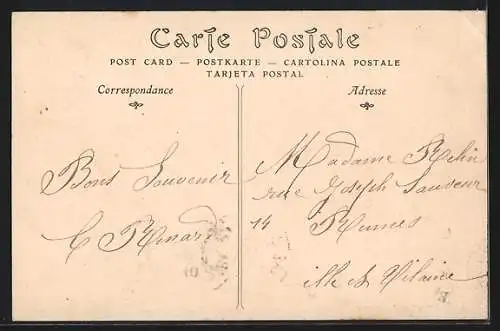 Carte Postale
POST CARD — POSTKARTE — CARTOLINA POSTALE
TARJETA POSTAL
Correspondance
Adresse
Bons Souvenir
C Renard
Madame
rue Joseph Sauveur
14 Rennes
ille et Vilaine